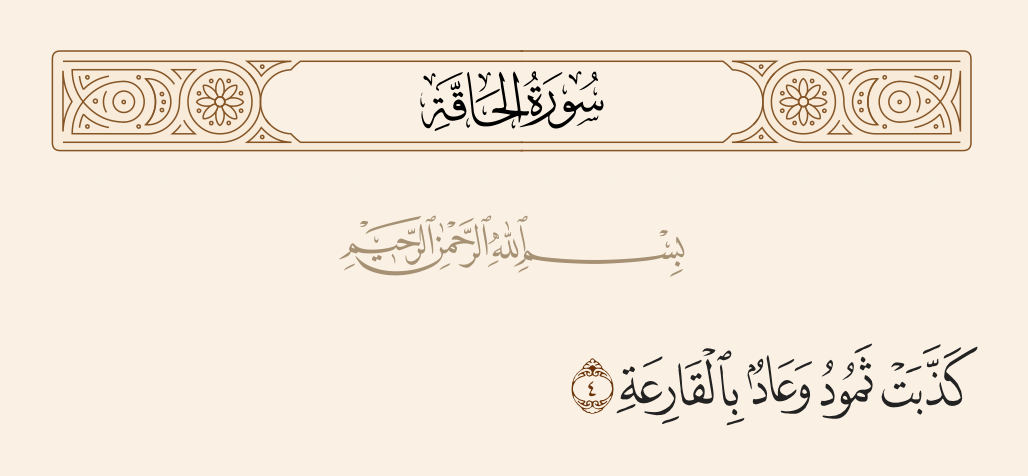 سُورَةُ الحَاقَّةِ
بِسْمِ ٱللَّهِ ٱلرَّحْمَٰنِ ٱلرَّحِيمِ
كَذَّبَتْ ثَمُودُ وَعَادٌۢ بِٱلْقَارِعَةِ ٤